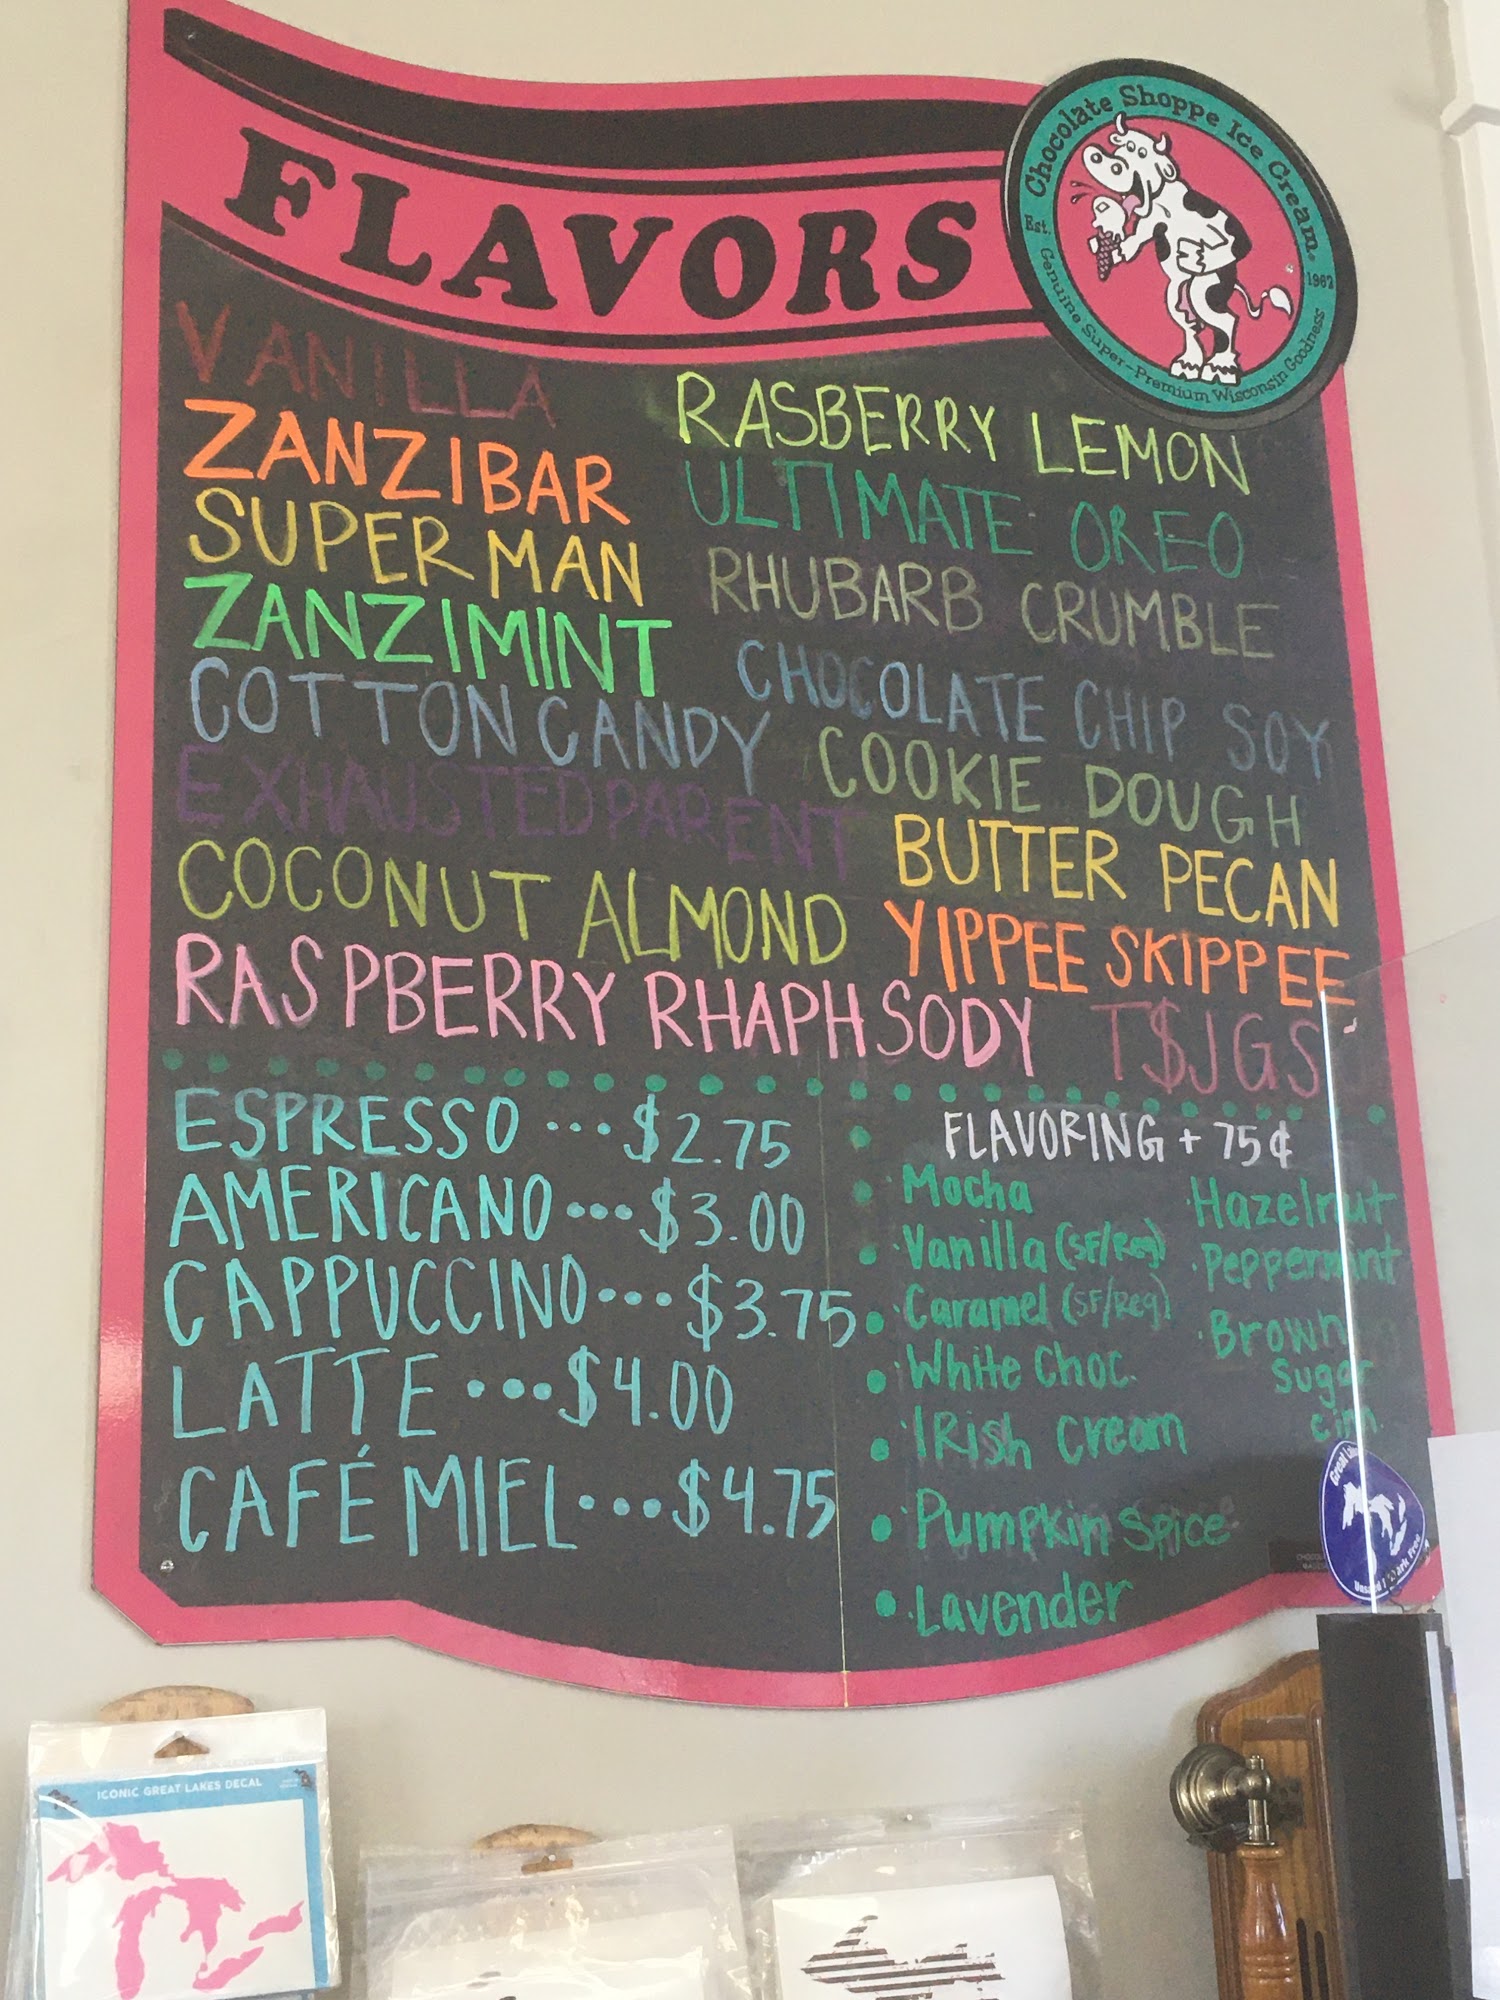 FLAVORS
Chocolate Shoppe Ice Cream®
Est. 1962
Genuine Super-Premium Wisconsin Goodness
VANILLA
ZANZIBAR
SUPERMAN
ZANZIMINT
COTTON CANDY
EXHAUSTED PARENT
COCONUT ALMOND
RASPBERRY RHAPHSODY
RASBERRY LEMON
ULTIMATE OREO
RHUBARB CRUMBLE
CHOCOLATE CHIP SOY
COOKIE DOUGH
BUTTER PECAN
YIPPEE SKIPPEE
T$JGS
ESPRESSO ... $2.75
AMERICANO ... $3.00
CAPPUCCINO ... $3.75
LATTE ... $4.00
CAFÉ MIEL ... $4.75
FLAVORING + 75¢
Mocha
Vanilla (SF/Reg)
Caramel (SF/Reg)
White Choc.
IRish Cream
Pumpkin Spice
Lavender
Hazelnut
Peppermint
Brown
Sugar
Cin.
ICONIC GREAT LAKES DECAL